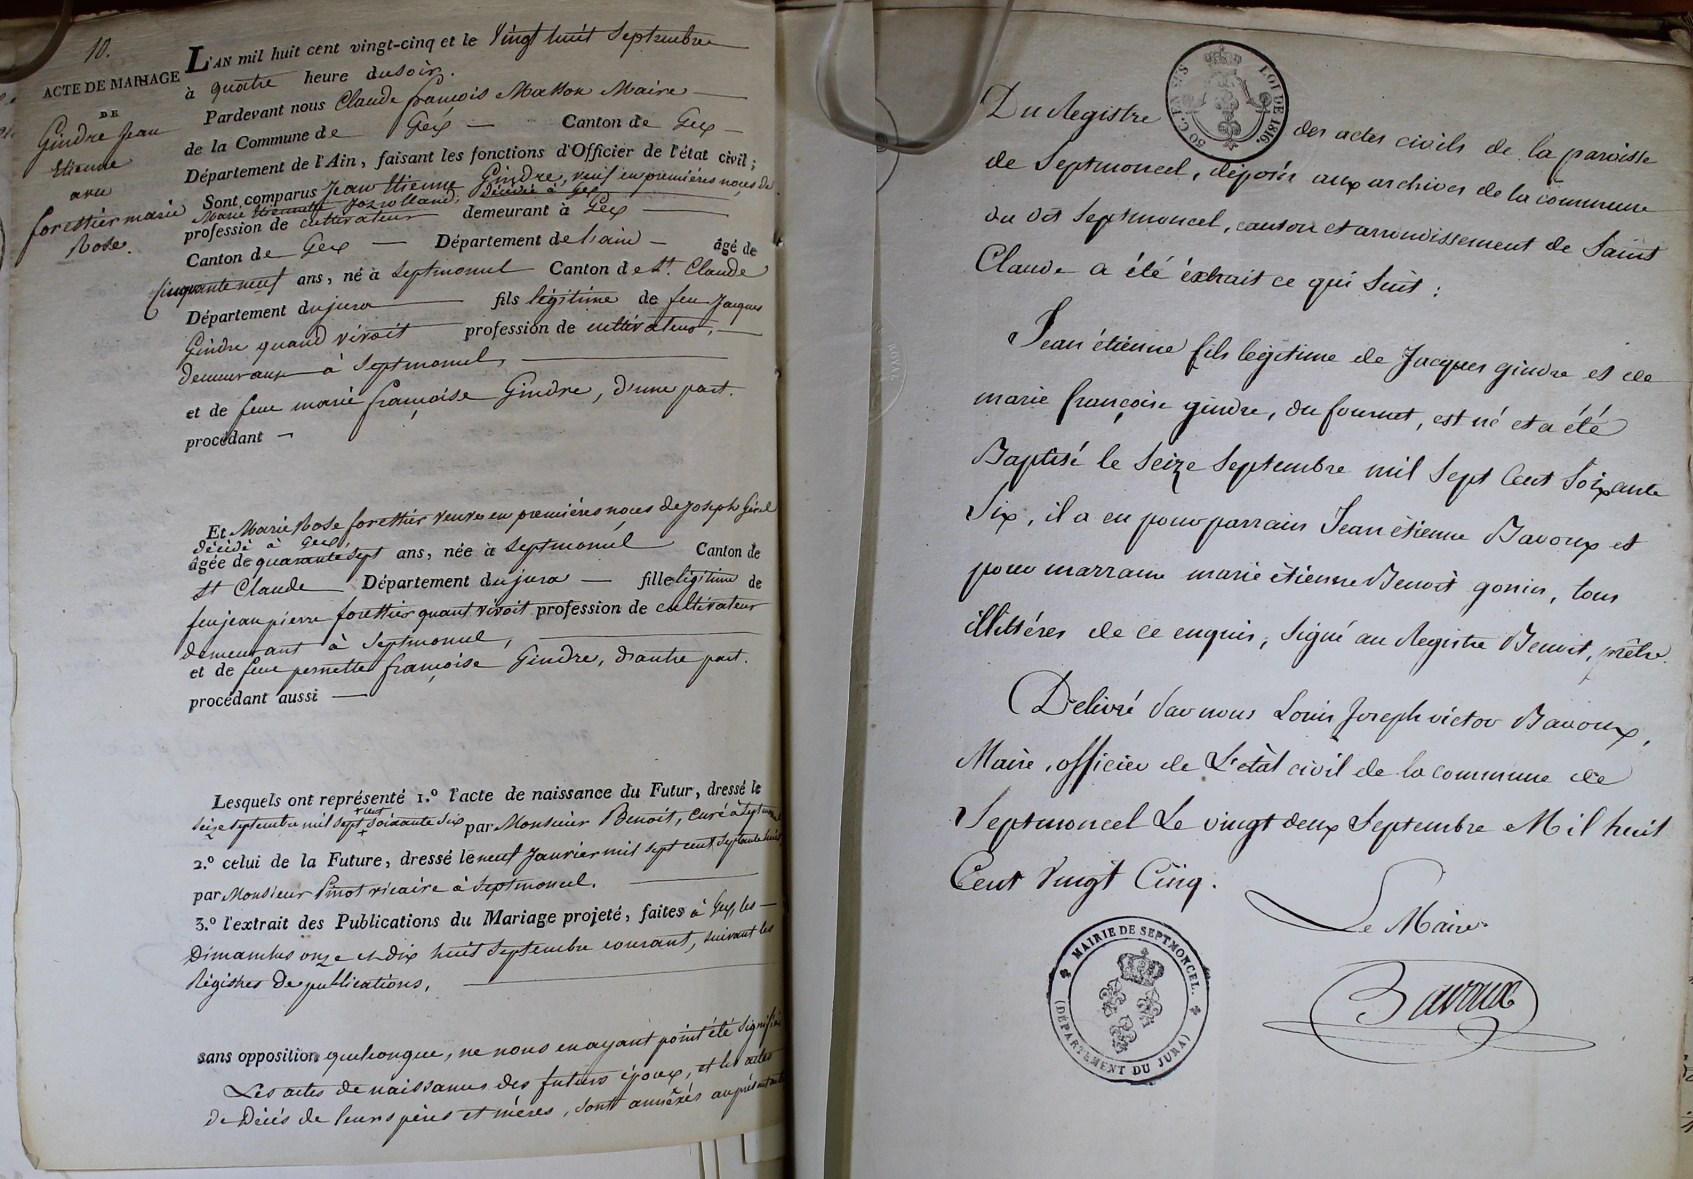 10.
ACTE DE MARIAGE
DE
Gindre Jean
Etienne
avec
forestier marie
Rose.
L'AN mil huit cent vingt-cinq et le Vingt huit Septembre
à quatre heure du soir.
Pardevant nous Claude françois Maire
de la Commune de Gex Canton de Gex
Département de l'Ain, faisant les fonctions d'Officier de l'état civil;
Sont comparus Jean Etienne Gindre, veuf en premières noces de
Marie décédée à Gex
profession de cultivateur demeurant à Gex
Canton de Gex Département de l'ain âgé de
Cinquante neuf ans, né à Septmoncel Canton de St. Claude
Département du jura fils légitime de feu Jacques
Gindre quand vivoit profession de cultivateur,
demeurant à Septmoncel,
et de feue marie françoise Gindre, d'une part.
procédant
Et Marie Rose forestier veuve en premières noces de Joseph
décédé à Gex,
âgée de quarante sept ans, née à Septmoncel Canton de
St Claude Département du jura fille légitime de
feu jean pierre forestier quant vivoit profession de cultivateur
demeurant à Septmoncel,
et de feue pernette françoise Gindre, d'autre part.
procédant aussi
Lesquels ont représenté 1.º l'acte de naissance du Futur, dressé le
Seize septembre mil sept cent soixante six par Monsieur Benoit, curé à Septmoncel
2.º celui de la Future, dressé le neuf Janvier mil sept cent septante huit
par Monsieur vicaire à Septmoncel.
3.º l'extrait des Publications du Mariage projeté, faites à Gex les
Dimanches onze et dix huit septembre courant, suivant les
Régistres de publications,
sans opposition quelconque, ne nous en ayant point été signifié
Les actes de naissances des futurs époux, et les actes
de Décès de leurs pères et mères, sont annéxés au présent
80 C. EN SUS LOI DE 1816.
Du Registre des actes civils de la paroisse
de Septmoncel, déposés aux archives de la commune
du dit Septmoncel, canton et arrondissement de Saint
Claude a été éxtrait ce qui Suit :
Jean étienne fils légitime de Jacques gindre et de
marie françoise gindre, du fournet, est né et a été
Baptisé le Seize Septembre mil Sept Cent Soixante
Six, il a eu pour parrain Jean étienne Bavoux et
pour marraine marie étienne Benoit gonin, tous
illittérés de ce enquis, Signé au Registre Benoit, prêtre.
Délivré par nous Louis Joseph victor Bavoux,
Maire, officier de L'état civil de la commune de
Septmoncel Le vingt deux Septembre Mil huit
Cent Vingt Cinq.
Le Maire
Bavoux
MAIRIE DE SEPTMONCEL.
(DÉPARTEMENT DU JURA)
ROYAL